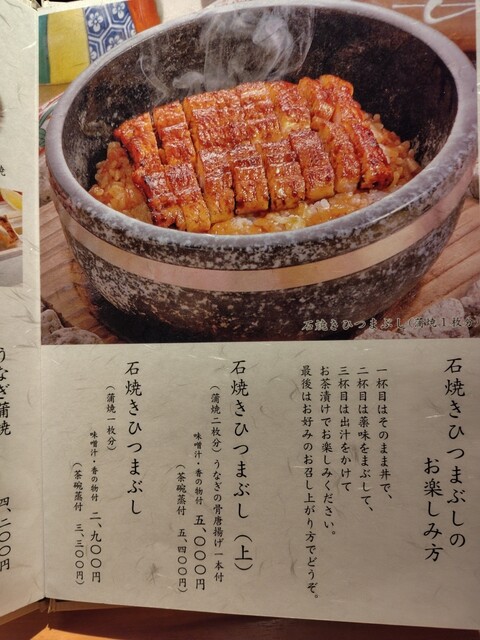 石焼きひつまぶし(蒲焼1枚分)
石焼きひつまぶしの
お楽しみ方
一杯目はそのまま丼で、
二杯目は薬味をまぶして、
三杯目は出汁をかけて
お茶漬けでお楽しみください。
最後はお好みのお召し上がり方でどうぞ。
石焼きひつまぶし(上)
(蒲焼二枚分)うなぎの骨唐揚げ一本付
味噌汁・香の物付 五、〇〇〇円
(茶碗蒸付 五、四〇〇円)
石焼きひつまぶし
(蒲焼一枚分)
味噌汁・香の物付 二、九〇〇円
(茶碗蒸付 三、三〇〇円)
うなぎ蒲焼
四、二〇〇円
焼